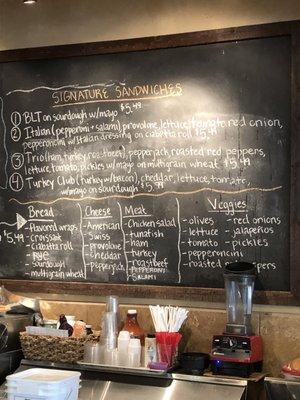 SIGNATURE SANDWICHES
① BLT on sourdough w/mayo $5.49
② Italian (pepperoni + salami) provolone, lettuce, tomato, red onion,
pepperoncini w/Italian dressing on ciabatta roll $5.49
③ Trio (ham, turkey, roast beef), pepperjack, roasted red peppers,
lettuce, tomato, pickles w/mayo on multigrain wheat $5.49
④ Turkey Club (turkey w/bacon), cheddar, lettuce, tomato,
w/mayo on sourdough $5.49
$5.49
Bread
- Flavored wraps
- croissant
- ciabatta roll
- rye
- sourdough
- multigrain wheat
Cheese
- American
- Swiss
- provolone
- cheddar
- pepperjack
Meat
- Chicken salad
- tunafish
- ham
- turkey
- roast beef
- PEPPERONI
- SALAMI
Veggies
- olives
- lettuce
- tomato
- pepperoncini
- roasted peppers
- red onions
- jalapeños
- pickles